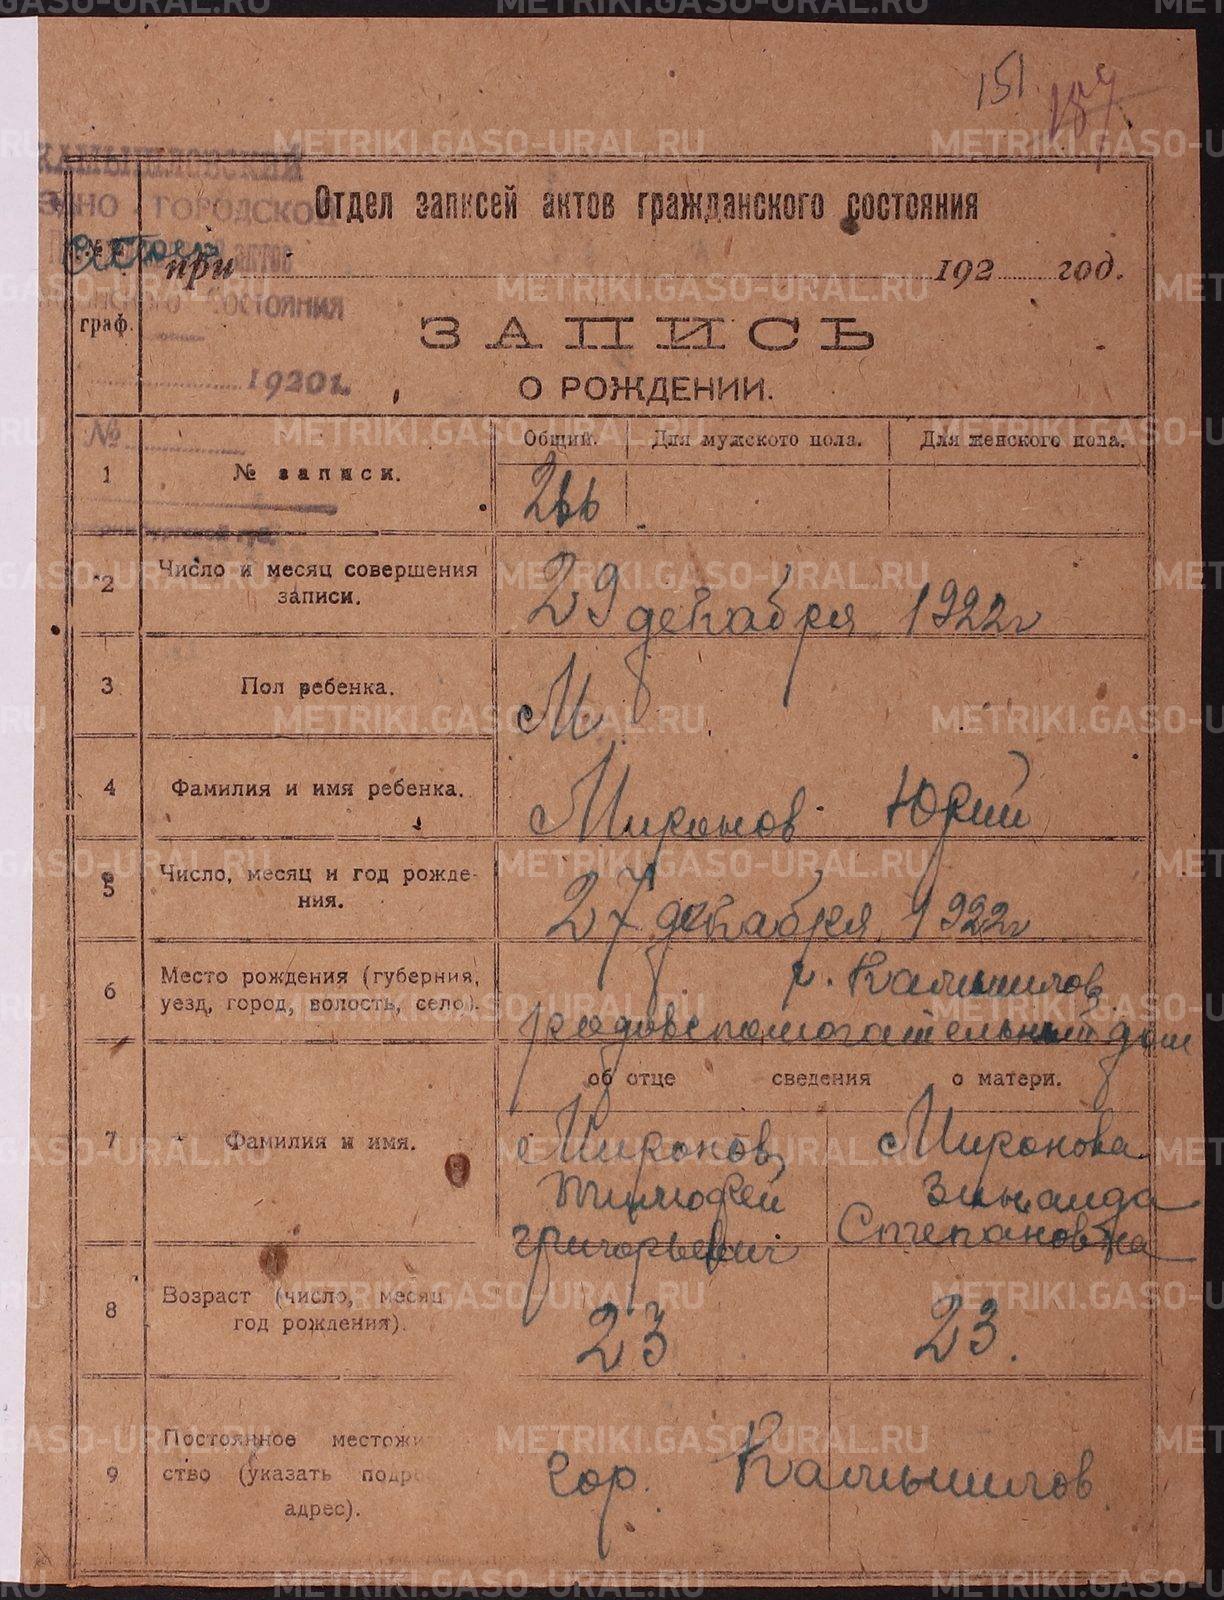 151
187
КАМЫШЛОВСКИЙ
ГОРОДСКОЙ
Отдел записей актов гражданского состояния
при 192 год.
СОСТОЯНИЯ
№ граф.
ЗАПИСЬ
1920 г.
О РОЖДЕНИИ.
№
Общий. Для мужского пола. Для женского пола.
1 № записи. 266
2 Число и месяц совершения записи. 29 декабря 1922 г
3 Пол ребенка. М.
4 Фамилия и имя ребенка. Миронов Юрий
5 Число, месяц и год рожде-
ния. 27 декабря 1922 г
6 Место рождения (губерния, г. Камышлов
уезд, город, волость, село). родовспомогательный дом
об отце сведения о матери.
7 Фамилия и имя. Миронов Миронова
Тимофей Зинаида
Григорьевич Степановна
8 Возраст (число, месяц
год рождения). 23 23.
Постоянное местожи
9 ство (указать подро гор. Камышлов
адрес).
METRIKI.GASO-URAL.RU